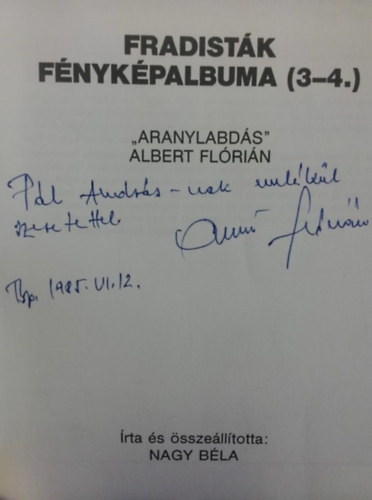 FRADISTÁK
FÉNYKÉPALBUMA (3–4.)
„ARANYLABDÁS”
ALBERT FLÓRIÁN
Pál András-nak emlékül
szeretettel.
Albert Flórián
Bp. 1995. VI. 12.
Írta és összeállította:
NAGY BÉLA